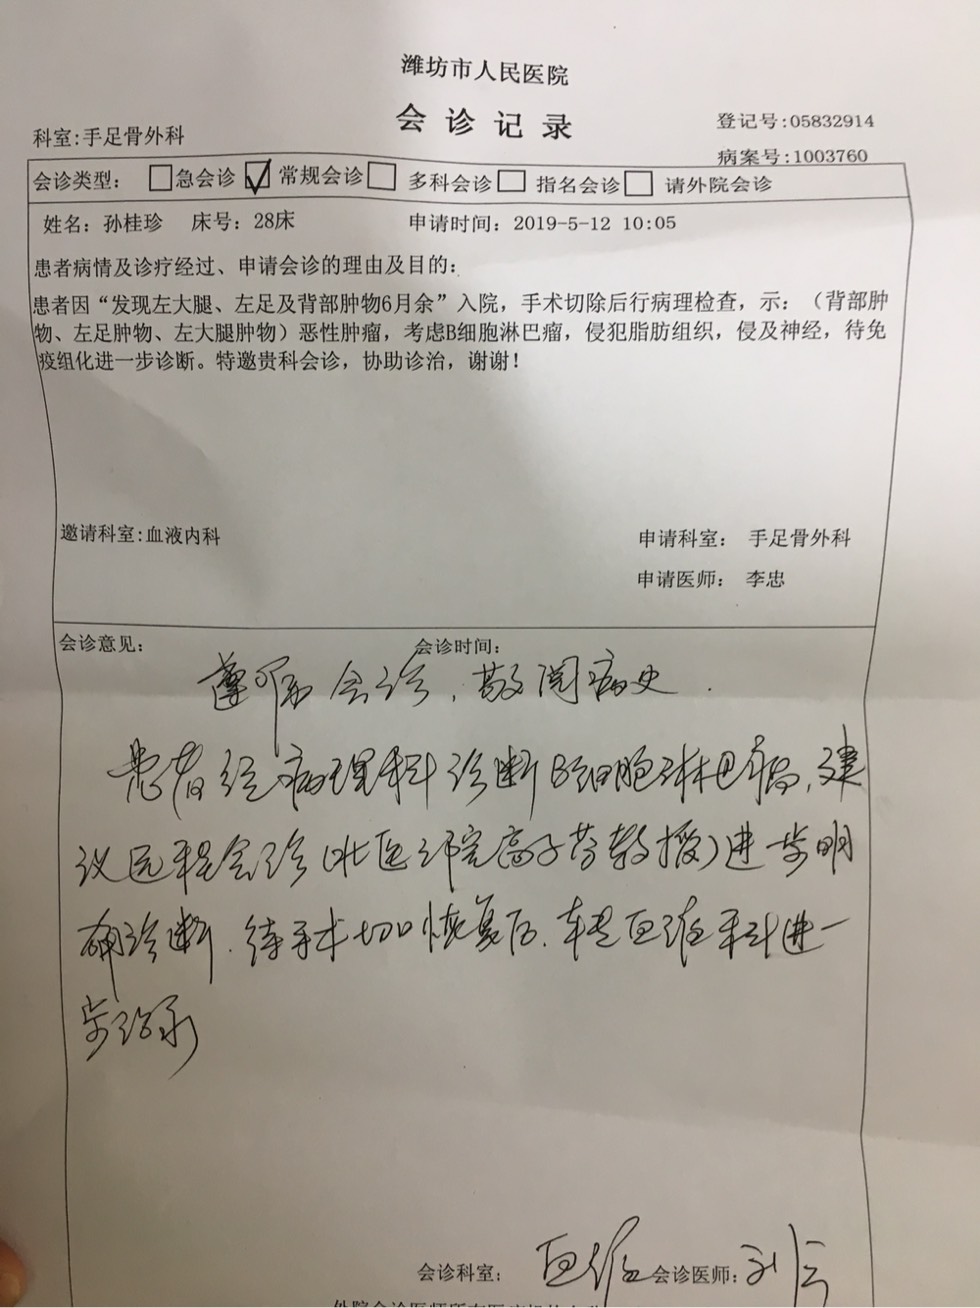 潍坊市人民医院
会诊记录
科室:手足骨外科
登记号:05832914
病案号:1003760
会诊类型: 急会诊 常规会诊 多科会诊 指名会诊 请外院会诊
姓名: 孙桂珍 床号: 28床 申请时间: 2019-5-12 10:05
患者病情及诊疗经过、申请会诊的理由及目的:
患者因“发现左大腿、左足及背部肿物6月余”入院, 手术切除后行病理检查, 示: (背部肿
物、左足肿物、左大腿肿物) 恶性肿瘤, 考虑B细胞淋巴瘤, 侵犯脂肪组织, 侵及神经, 待免
疫组化进一步诊断。特邀贵科会诊, 协助诊治, 谢谢!
邀请科室:血液内科
申请科室: 手足骨外科
申请医师: 李忠
会诊意见: 会诊时间:
遵嘱会诊, 敬阅病史.
患者经病理科诊断B细胞淋巴瘤, 建
议远程会诊(北医 高子芬教授)进一步明
确诊断. 待手术切口恢复后, 转 血液科进一
步治疗
会诊科室: 血液 会诊医师: 刘